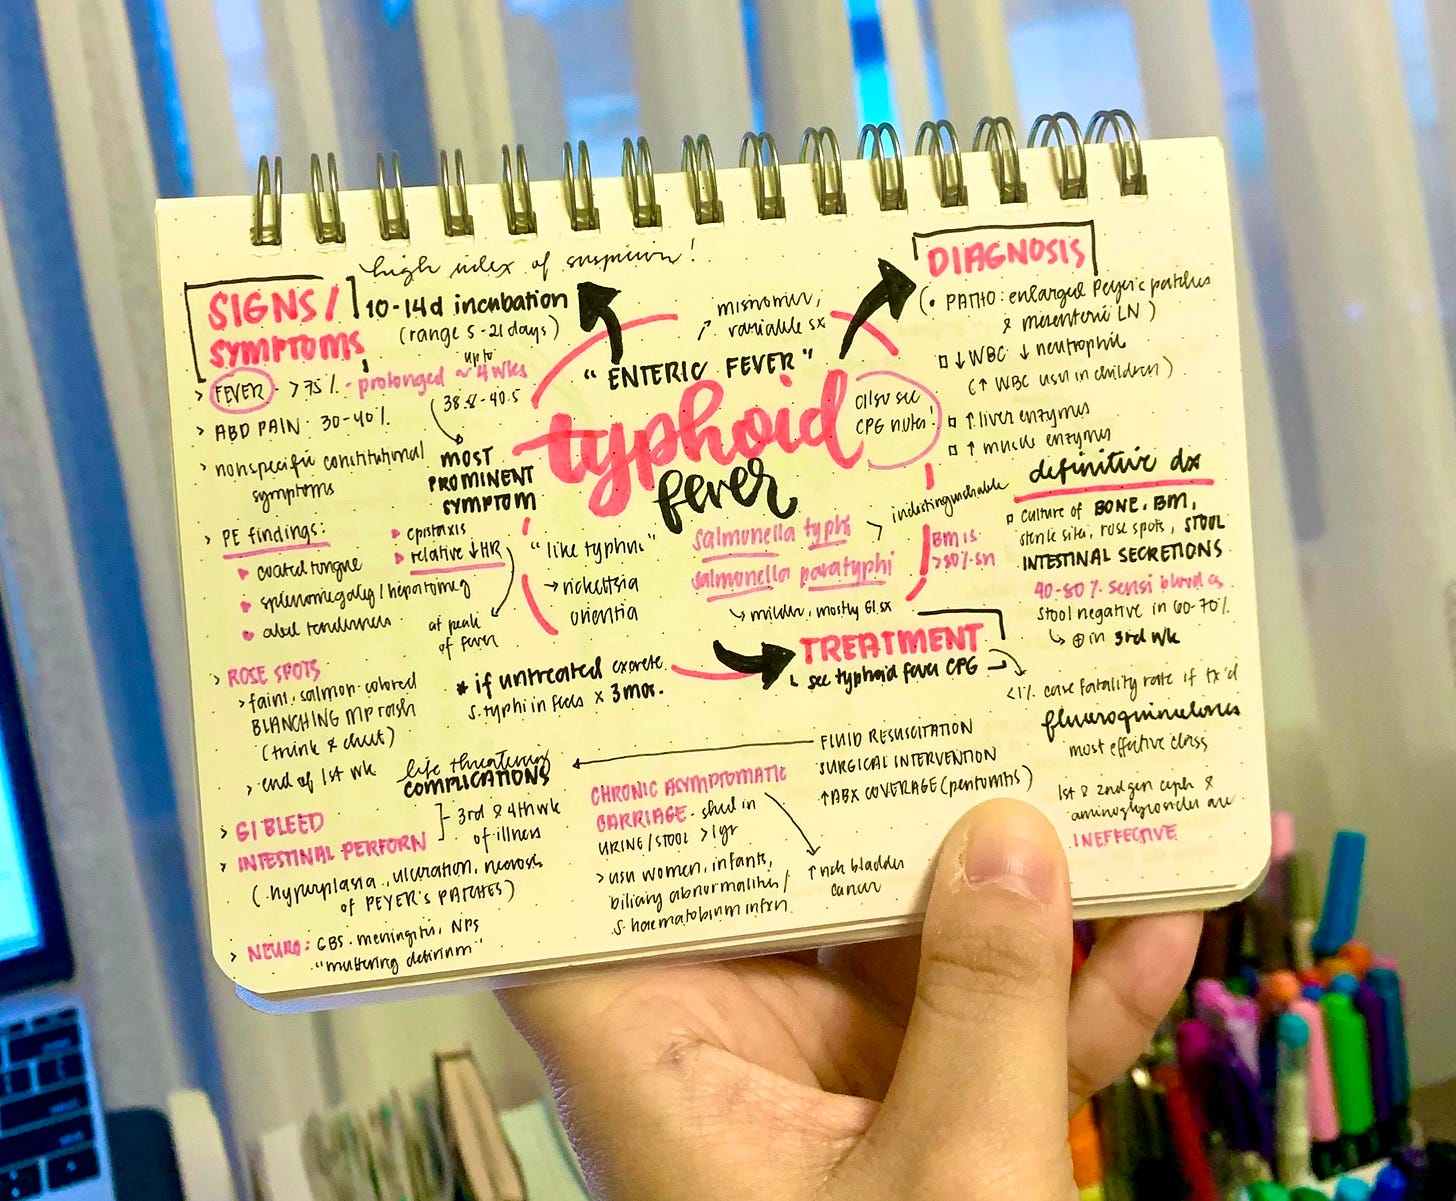 high index of suspicion!
SIGNS/
SYMPTOMS
10-14d incubation
(range 5-21 days)
> FEVER - >75% - prolonged ~ up to 4 wks
(38.8-40.5
MOST
PROMINENT
SYMPTOM
> ABD PAIN: 30-40%
> nonspecific constitutional
symptoms
> PE findings:
coated tongue
splenomegaly/hepatomeg
abd tenderness
epistaxis
relative ↓HR
at peak
of fever
> ROSE SPOTS
> faint, salmon-colored
BLANCHING MP rash
(trunk & chest)
> end of 1st wk
misnomer,
variable sx
"ENTERIC FEVER"
typhoid
fever
also see
CPG notes!
"like typhus"
→ rickettsia
orientia
salmonella typhi
salmonella paratyphi
> indistinguishable
↳ milder, mostly GI sx
BM is
>80% sn
* if untreated excrete
S. typhi in feces x 3mos.
DIAGNOSIS
(• PATHO: enlarged Peyer's patches
& mesenteric LN)
↓WBC ↓ neutrophil
(↑ WBC usu in children)
↑ liver enzymes
↑ muscle enzymes
definitive dx
culture of BONE, BM,
sterile sites, rose spots, STOOL
INTESTINAL SECRETIONS
40-80% sensi blood cs
stool negative in 60-70%
↳ ⊕ in 3rd wk
TREATMENT
↳ see typhoid fever CPG
<1% case fatality rate if tx'd
fluoroquinolones
most effective class
1st & 2nd gen ceph &
aminoglycosides are
INEFFECTIVE
FLUID RESUSCITATION
SURGICAL INTERVENTION
↑ABX COVERAGE (peritonitis)
life threatening
COMPLICATIONS
> GI BLEED
> INTESTINAL PERFORN
3rd & 4th wk
of illness
(hyperplasia, ulceration, necrosis
of PEYER'S PATCHES)
> NEURO: GBS, meningitis, NPS
"muttering delirium"
CHRONIC ASYMPTOMATIC
CARRIAGE - shed in
URINE/STOOL >1yr
> usu women, infants,
biliary abnormalities/
S. haematobium infxn
↑ risk bladder
cancer